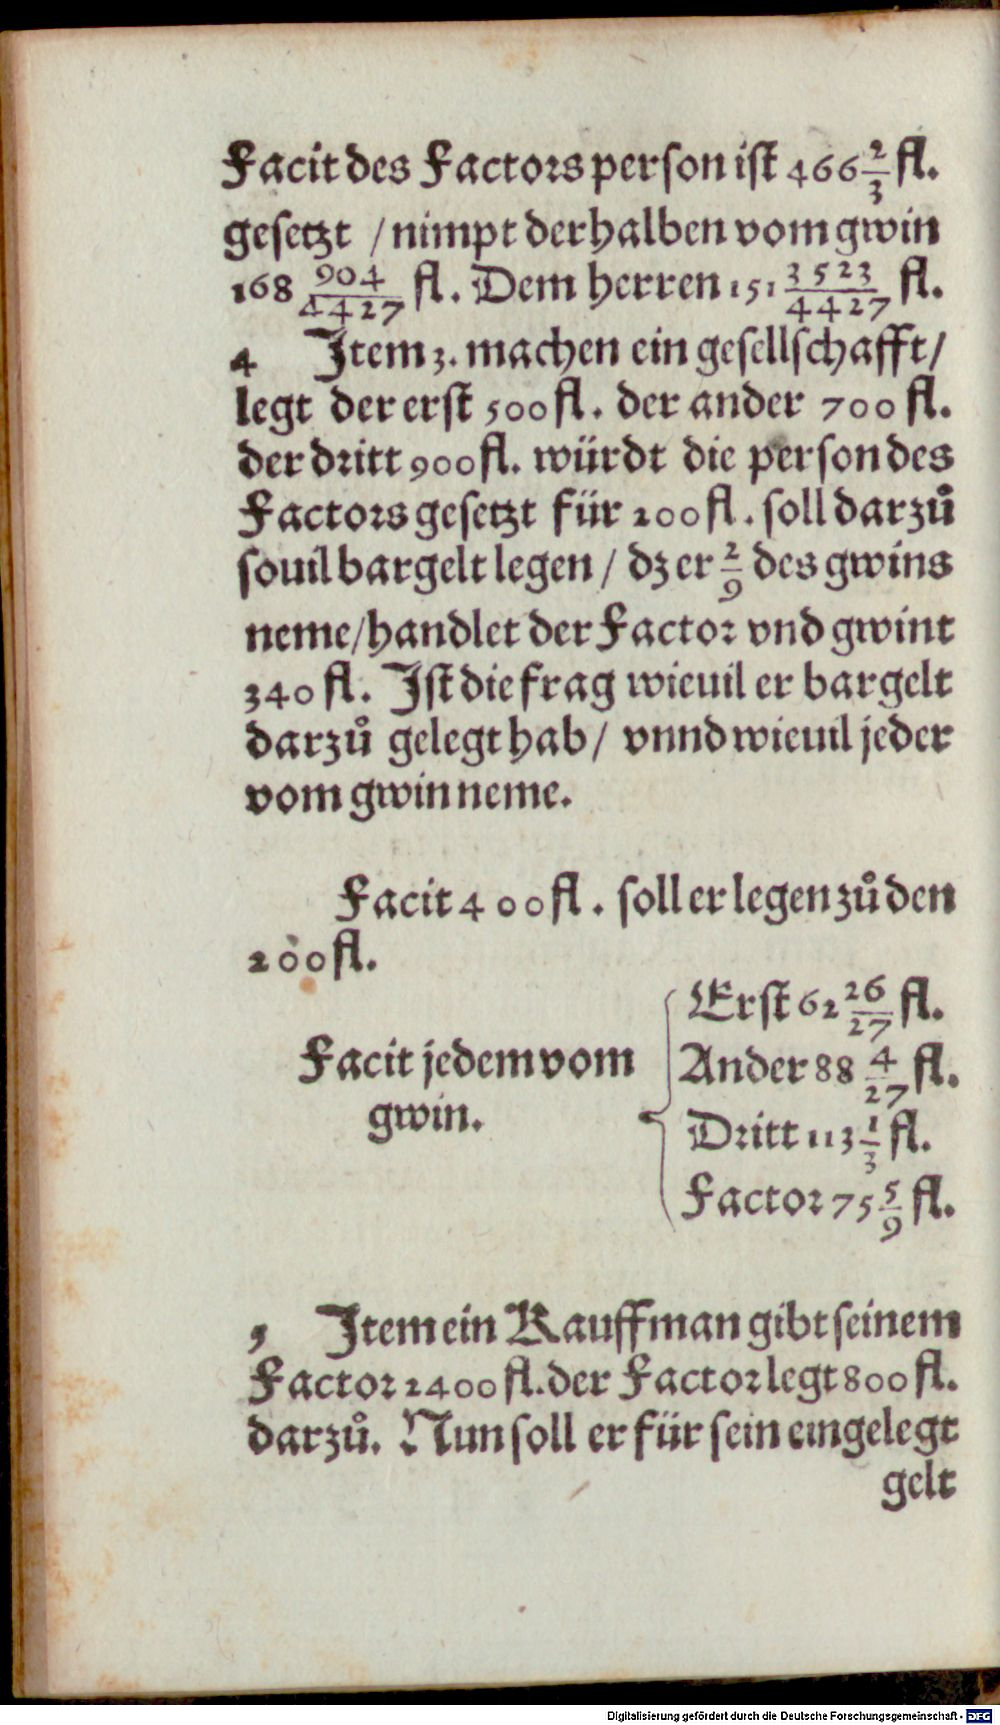 Facit des Factors person ist 466 2/3 fl.
gesetzt / nimpt derhalben vom gwin
168 904/4427 fl. Dem herren 151 3523/4427 fl.
4 Item 3. machen ein gesellschafft /
legt der erst 500 fl. der ander 700 fl.
der dritt 900 fl. würdt die person des
Factors gesetzt für 200 fl. soll darzů
souil bargelt legen / dz er 2/9 des gwins
neme / handlet der Factor vnd gwint
340 fl. Ist die frag wieuil er bargelt
darzů gelegt hab / vnnd wieuil jeder
vom gwin neme.
Facit 400 fl. soll er legen zů den
200 fl.
Facit jedem vom
gwin.
Erst 62 26/27 fl.
Ander 88 4/27 fl.
Dritt 113 1/3 fl.
Factor 75 5/9 fl.
5 Item ein Kauffman gibt seinem
Factor 2400 fl. der Factor legt 800 fl.
darzů. Nun soll er für sein eingelegt
gelt
Digitalisierung gefördert durch die Deutsche Forschungsgemeinschaft - DFG